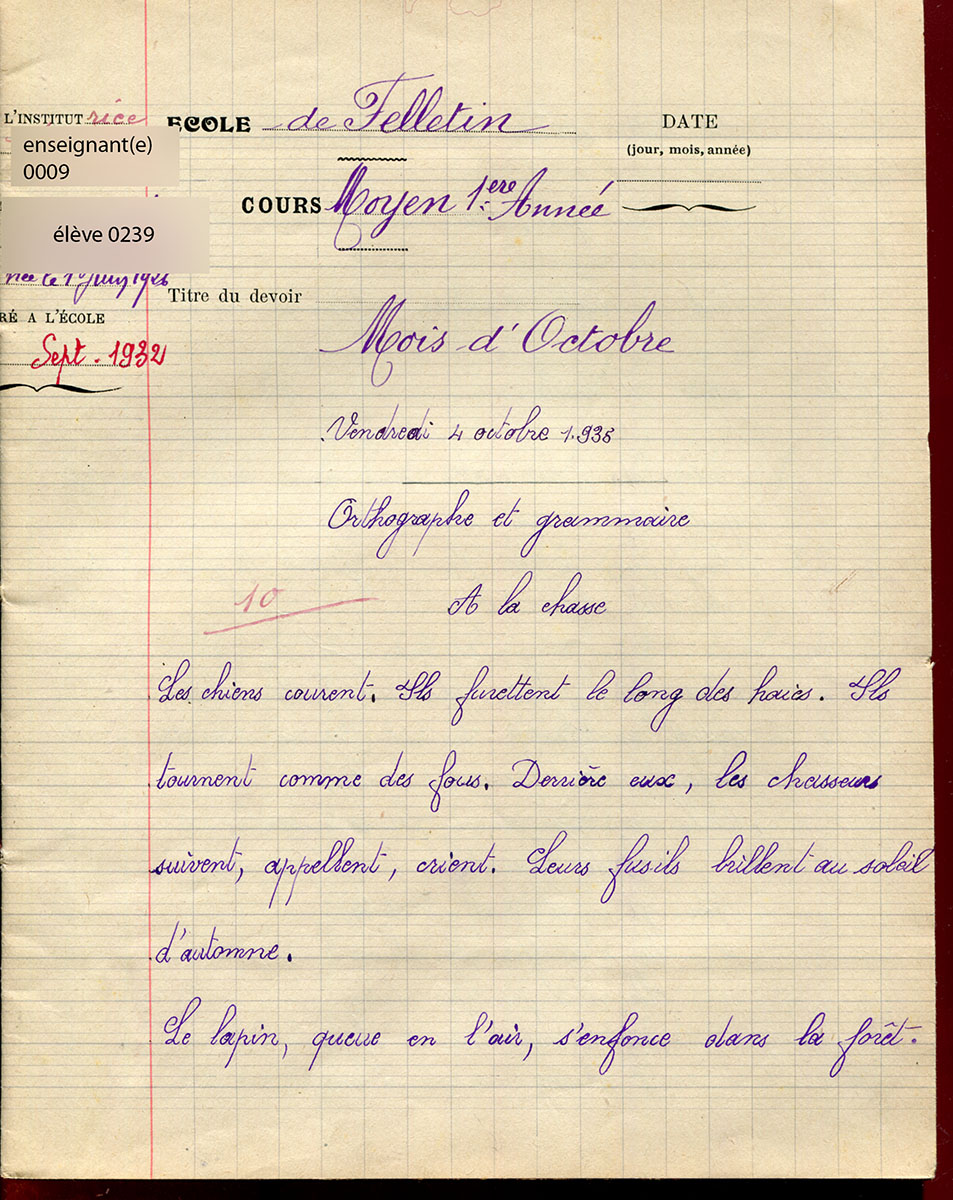 L'INSTITUTrice
enseignant(e)
0009
élève 0239
née le 1 Juin 1926
RÉ A L'ÉCOLE
Sept. 1932
ECOLE de Felletin
DATE
(jour, mois, année)
COURS Moyen 1ère Année
Titre du devoir
Mois d'Octobre
Vendredi 4 octobre 1.935
Orthographe et grammaire
10
A la chasse
Les chiens courent. Ils furettent le long des haies. Ils
tournent comme des fous. Derrière eux, les chasseurs
suivent, appellent, crient. Leurs fusils brillent au soleil
d'automne.
Le lapin, queue en l'air, s'enfonce dans la forêt.